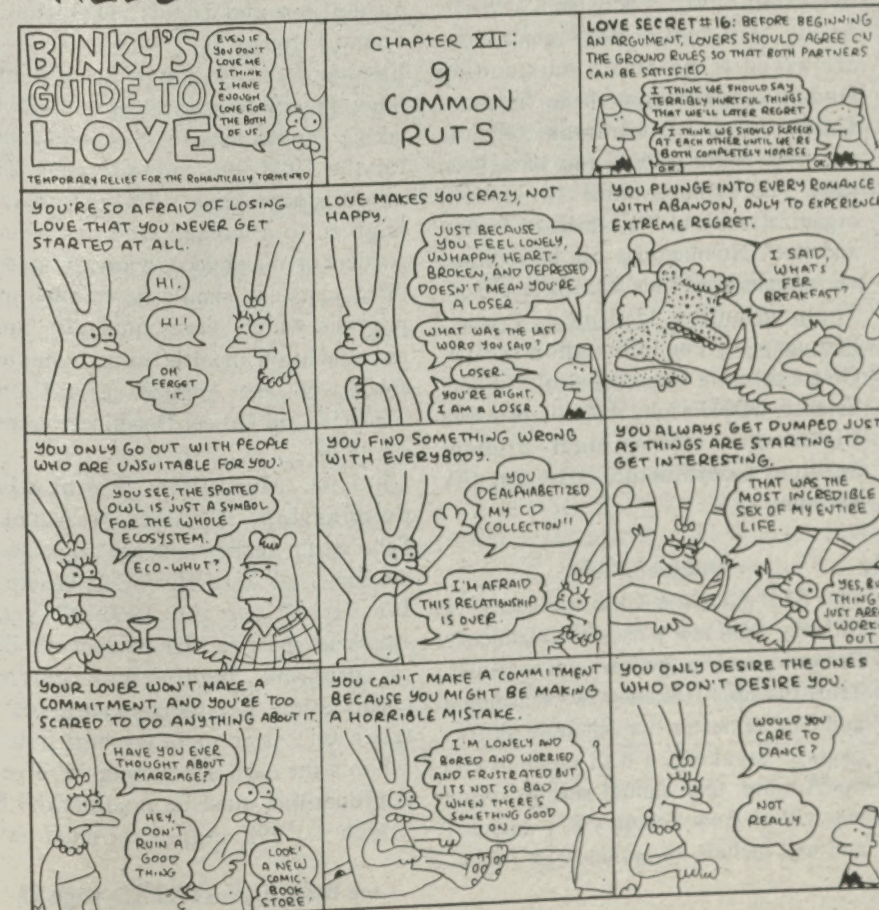 BINKY'S
GUIDE TO
LOVE
TEMPORARY RELIEF FOR THE ROMANTICALLY TORMENTED
EVEN IF
YOU DON'T
LOVE ME,
I THINK
I HAVE
ENOUGH
LOVE FOR
THE BOTH
OF US.
CHAPTER XII:
9
COMMON
RUTS
LOVE SECRET #16: BEFORE BEGINNING
AN ARGUMENT, LOVERS SHOULD AGREE ON
THE GROUND RULES SO THAT BOTH PARTNERS
CAN BE SATISFIED.
I THINK WE SHOULD SAY
TERRIBLY HURTFUL THINGS
THAT WE'LL LATER REGRET
I THINK WE SHOULD SCREECH
AT EACH OTHER UNTIL WE'RE
BOTH COMPLETELY HOARSE.
OK
OK
YOU'RE SO AFRAID OF LOSING
LOVE THAT YOU NEVER GET
STARTED AT ALL.
HI.
HI!
OH
FERGET
IT.
LOVE MAKES YOU CRAZY, NOT
HAPPY.
JUST BECAUSE
YOU FEEL LONELY,
UNHAPPY, HEART-
BROKEN, AND DEPRESSED
DOESN'T MEAN YOU'RE
A LOSER.
WHAT WAS THE LAST
WORD YOU SAID?
LOSER.
YOU'RE RIGHT.
I AM A LOSER.
YOU PLUNGE INTO EVERY ROMANCE
WITH ABANDON, ONLY TO EXPERIENCE
EXTREME REGRET.
I SAID,
WHATS
FER
BREAKFAST?
YOU ONLY GO OUT WITH PEOPLE
WHO ARE UNSUITABLE FOR YOU.
YOU SEE, THE SPOTTED
OWL IS JUST A SYMBOL
FOR THE WHOLE
ECOSYSTEM.
ECO-WHUT?
YOU FIND SOMETHING WRONG
WITH EVERYBODY.
YOU
DEALPHABETIZED
MY CD
COLLECTION!!
I'M AFRAID
THIS RELATIONSHIP
IS OVER.
YOU ALWAYS GET DUMPED JUST
AS THINGS ARE STARTING TO
GET INTERESTING.
THAT WAS THE
MOST INCREDIBLE
SEX OF MY ENTIRE
LIFE.
YES,
THING
JUST
WORK
OUT
YOUR LOVER WON'T MAKE A
COMMITMENT, AND YOU'RE TOO
SCARED TO DO ANYTHING ABOUT IT.
HAVE YOU EVER
THOUGHT ABOUT
MARRIAGE?
HEY,
DON'T
RUIN A
GOOD
THING
LOOK!
A NEW
COMIC-
BOOK
STORE!
YOU CAN'T MAKE A COMMITMENT
BECAUSE YOU MIGHT BE MAKING
A HORRIBLE MISTAKE.
I'M LONELY AND
BORED AND WORRIED
AND FRUSTRATED BUT
ITS NOT SO BAD
WHEN THERE'S
SOMETHING GOOD
ON.
YOU ONLY DESIRE THE ONES
WHO DON'T DESIRE YOU.
WOULD YOU
CARE TO
DANCE?
NOT
REALLY.